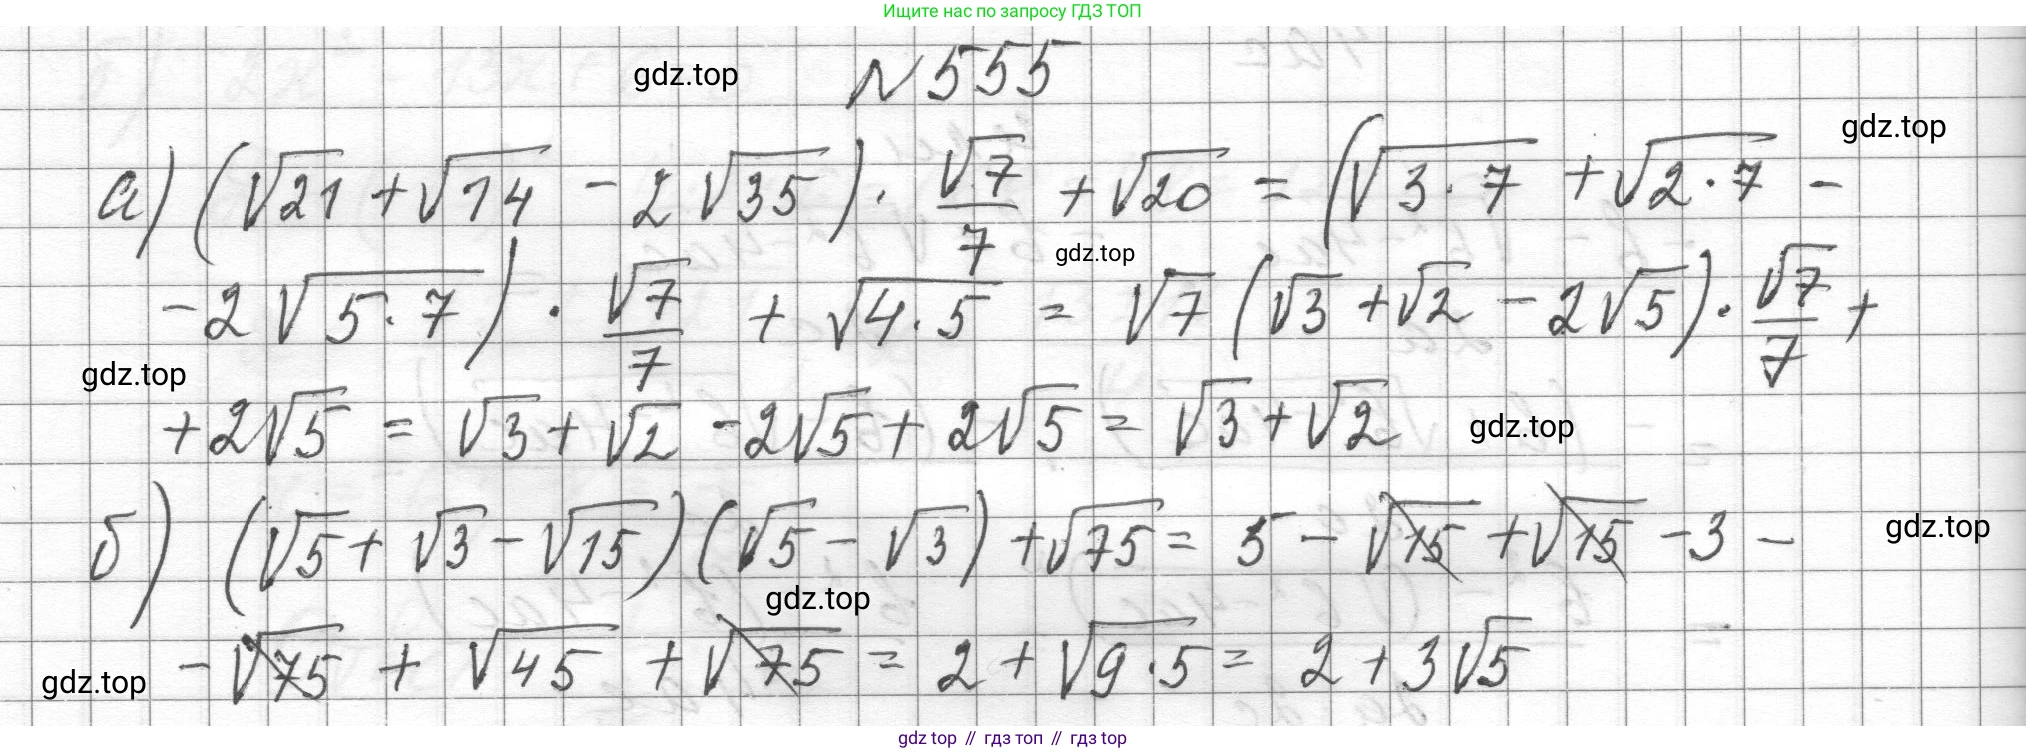 Ищите нас по запросу ГДЗ ТОП
gdz.top
N 555
gdz.top
а) (√21 + √14 - 2√35) · √7/7 + √20 = (√3·7 + √2·7 -
gdz.top
- 2√5·7) · √7/7 + √4·5 = √7 (√3 + √2 - 2√5) · √7/7 +
gdz.top
+ 2√5 = √3 + √2 - 2√5 + 2√5 = √3 + √2
gdz.top
б) (√5 + √3 - √15) (√5 - √3) + √75 = 5 - √15 + √15 - 3 -
gdz.top
gdz.top
- √75 + √45 + √75 = 2 + √9·5 = 2 + 3√5
gdz.top
gdz top // гдз топ // гдз top